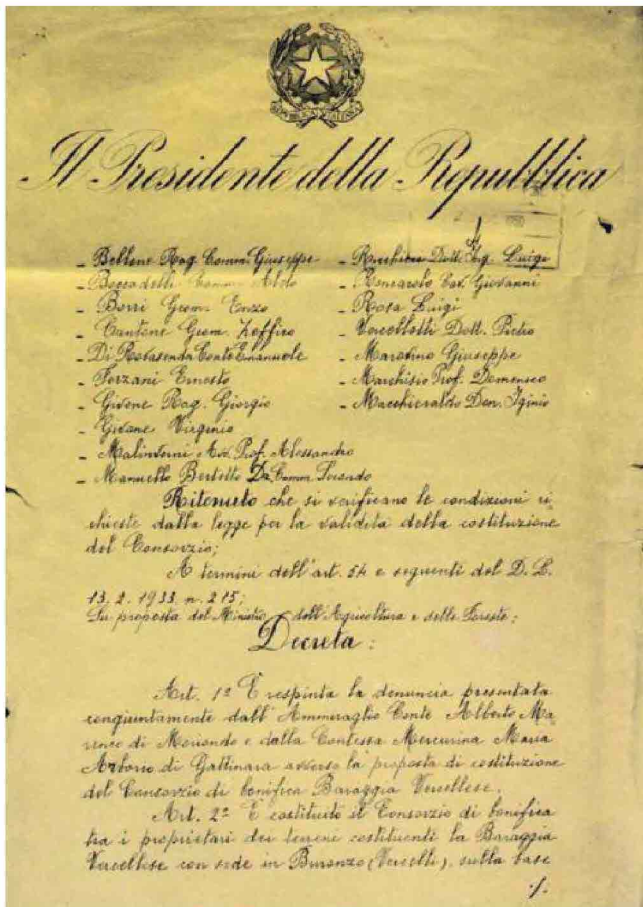 REPVBBLICA ITALIANA
Il Presidente della Repubblica
- Bellone Rag. Comm. Giuseppe
- Boccadelli Comm. Aldo
- Borri Geom. Enzo
- Cantone Geom. Zeffiro
- Di Rovasenda Conte Emanuele
- Forzani Ernesto
- Givone Rag. Giorgio
- Givone Virginio
- Malinverni Avv. Prof. Alessandro
- Mannello Bertetto Dr. Comm. Secondo
- Dott. Ing. Luigi
- Roncarolo Cav. Giovanni
- Rosa Luigi
- Vercellotti Dott. Pietro
- Marovino Giuseppe
- Marchisio Prof. Domenico
- Macchieraldo Den. Iginio
Ritenuto che si verificano le condizioni ri
chieste dalla legge per la validità della costituzione
del Consorzio;
A termini dell'art. 54 e seguenti del D. L.
13. 2. 1933 n. 215;
Su proposta del Ministro dell'Agricoltura e delle Foreste;
Decreta:
Art. 1° È respinta la denuncia presentata
congiuntamente dall'Ammiraglio Conte Alberto Ma
renco di Moriondo e dalla Contessa Mercurina Maria
Arborio di Gattinara avverso la proposta di costituzione
del Consorzio di bonifica Baraggia Vercellese.
Art. 2° È costituito il Consorzio di bonifica
tra i proprietari dei terreni costituenti la Baraggia
Vercellese con sede in Buronzo (Vercelli), sulla base
./.